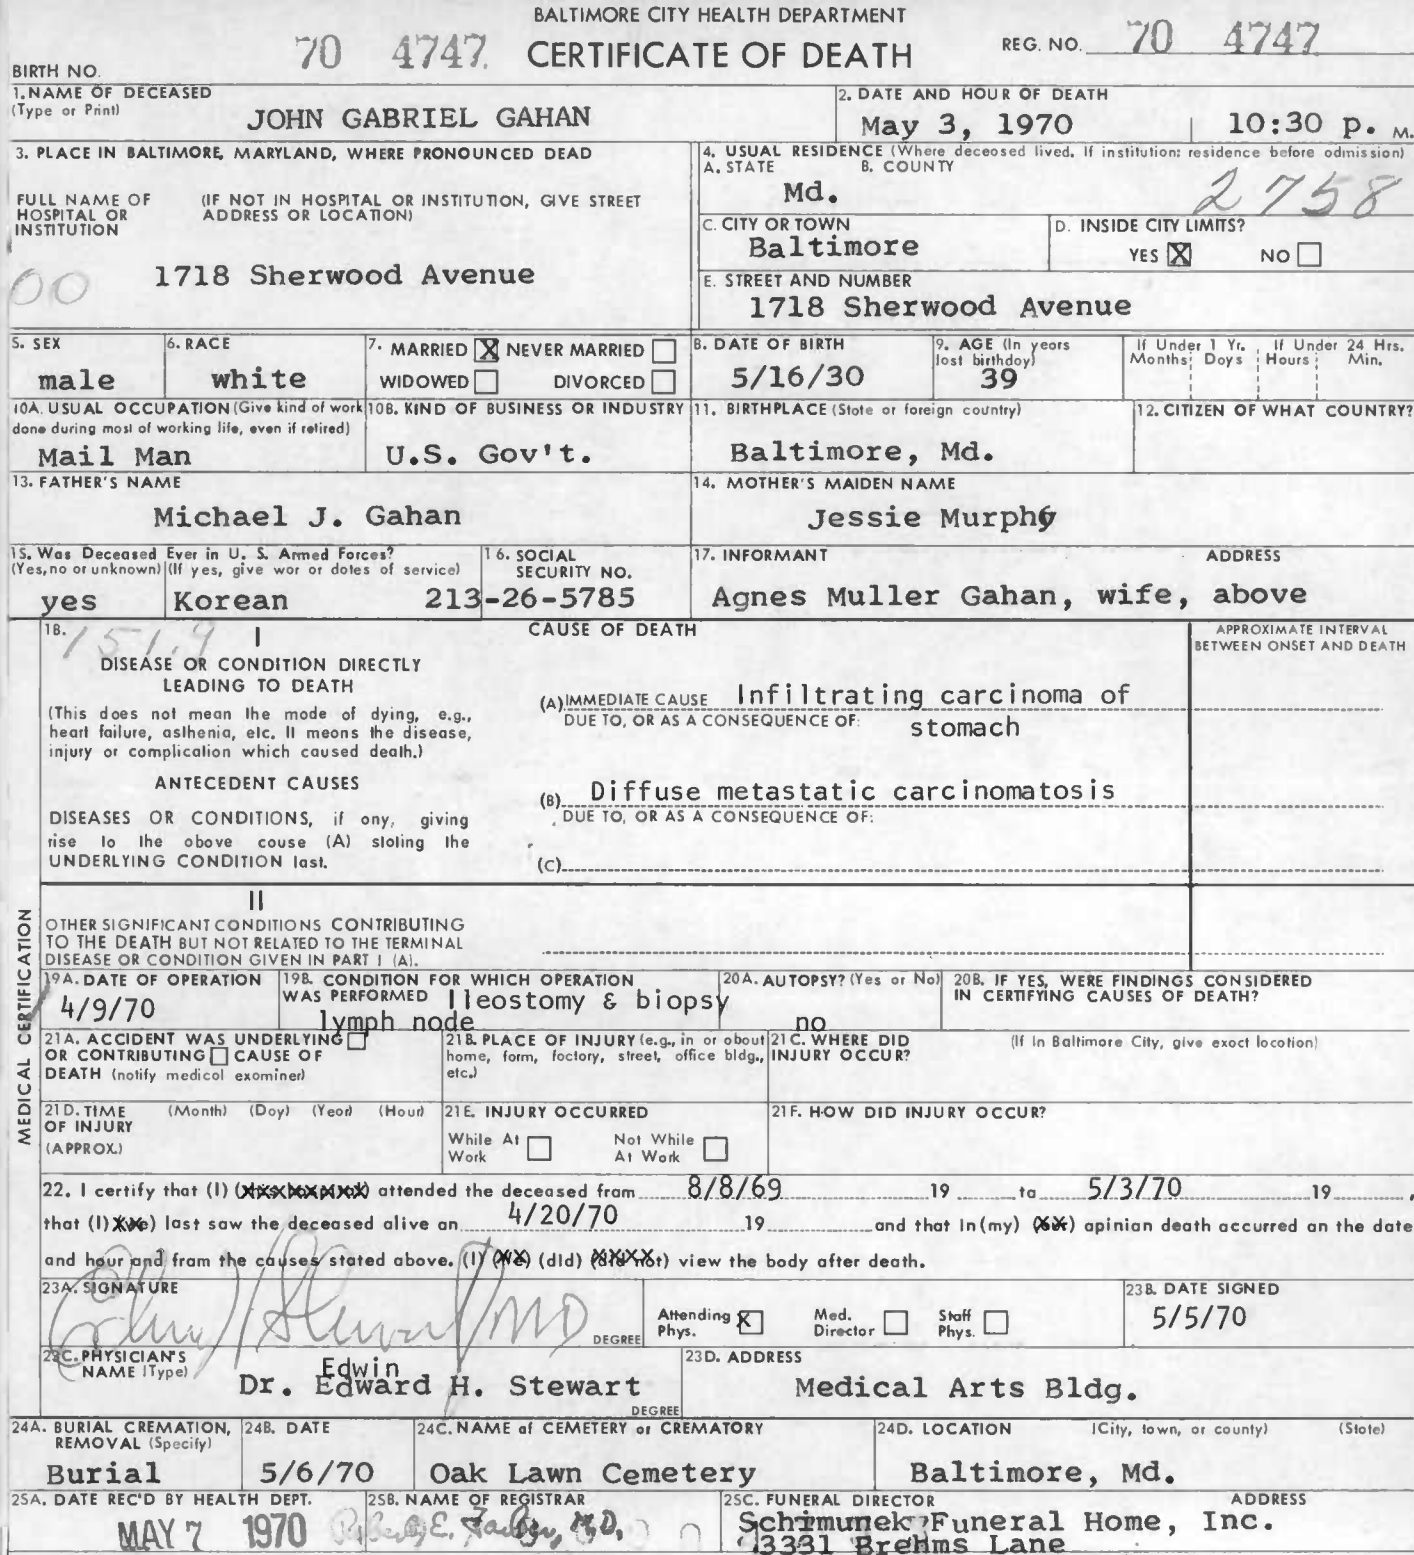 BALTIMORE CITY HEALTH DEPARTMENT
70 4747. CERTIFICATE OF DEATH REG. NO. 70 4747
BIRTH NO.
1. NAME OF DECEASED (Type or Print) JOHN GABRIEL GAHAN
2. DATE AND HOUR OF DEATH May 3, 1970 10:30 p. M.
3. PLACE IN BALTIMORE, MARYLAND, WHERE PRONOUNCED DEAD
FULL NAME OF HOSPITAL OR INSTITUTION (IF NOT IN HOSPITAL OR INSTITUTION, GIVE STREET ADDRESS OR LOCATION)
00 1718 Sherwood Avenue
4. USUAL RESIDENCE (Where deceosed lived. If institution: residence before odmission)
A. STATE B. COUNTY
Md. 2758
C. CITY OR TOWN Baltimore
D. INSIDE CITY LIMITS? YES X NO
E. STREET AND NUMBER
1718 Sherwood Avenue
5. SEX male
6. RACE white
7. MARRIED X NEVER MARRIED
WIDOWED DIVORCED
8. DATE OF BIRTH 5/16/30
9. AGE (In years lost birthdoy) 39
If Under 1 Yr. Months Doys If Under 24 Hrs. Hours Min.
10A. USUAL OCCUPATION (Give kind of work done during most of working life, even if retired)
Mail Man
10B. KIND OF BUSINESS OR INDUSTRY
U.S. Gov't.
11. BIRTHPLACE (Stote or foreign country)
Baltimore, Md.
12. CITIZEN OF WHAT COUNTRY?
13. FATHER'S NAME
Michael J. Gahan
14. MOTHER'S MAIDEN NAME
Jessie Murphy
15. Was Deceased Ever in U. S. Armed Forces?
(Yes, no or unknown) (If yes, give wor or dotes of service)
yes Korean
16. SOCIAL SECURITY NO.
213-26-5785
17. INFORMANT ADDRESS
Agnes Muller Gahan, wife, above
18. 151.9 I
DISEASE OR CONDITION DIRECTLY
LEADING TO DEATH
(This does not mean the mode of dying, e.g.,
heart failure, asthenia, etc. It means the disease,
injury or complication which caused death.)
ANTECEDENT CAUSES
DISEASES OR CONDITIONS, if ony, giving
rise to the obove couse (A) stoting the
UNDERLYING CONDITION last.
CAUSE OF DEATH
APPROXIMATE INTERVAL
BETWEEN ONSET AND DEATH
(A) IMMEDIATE CAUSE Infiltrating carcinoma of
DUE TO, OR AS A CONSEQUENCE OF: stomach
(B) Diffuse metastatic carcinomatosis
DUE TO, OR AS A CONSEQUENCE OF:
(C)
II
OTHER SIGNIFICANT CONDITIONS CONTRIBUTING
TO THE DEATH BUT NOT RELATED TO THE TERMINAL
DISEASE OR CONDITION GIVEN IN PART I (A).
MEDICAL CERTIFICATION
19A. DATE OF OPERATION
4/9/70
19B. CONDITION FOR WHICH OPERATION
WAS PERFORMED Ileostomy & biopsy
lymph node
20A. AUTOPSY? (Yes or No)
no
20B. IF YES, WERE FINDINGS CONSIDERED
IN CERTIFYING CAUSES OF DEATH?
21A. ACCIDENT WAS UNDERLYING
OR CONTRIBUTING CAUSE OF
DEATH (notify medicol exominer)
21B. PLACE OF INJURY (e.g., in or obout
home, form, foctory, street, office bldg.,
etc.)
21C. WHERE DID (If in Boltimore City, give exoct locotion)
INJURY OCCUR?
21D. TIME (Month) (Doy) (Yeor) (Hour)
OF INJURY
(APPROX.)
21E. INJURY OCCURRED
While At Work Not While At Work
21F. HOW DID INJURY OCCUR?
22. I certify that (I) attended the deceased from 8/8/69 19 to 5/3/70 19 ,
that (I) last saw the deceased alive on 4/20/70 19 and that in (my) opinian death accurred an the date
and hour and from the causes stated above. (I) (did) view the body after death.
23A. SIGNATURE
MD
DEGREE
Attending Phys. X Med. Director Staff Phys.
23B. DATE SIGNED
5/5/70
23C. PHYSICIAN'S
NAME (Type)
Edwin
Dr. Edward H. Stewart
DEGREE
23D. ADDRESS
Medical Arts Bldg.
24A. BURIAL CREMATION,
REMOVAL (Specify)
Burial
24B. DATE
5/6/70
24C. NAME of CEMETERY or CREMATORY
Oak Lawn Cemetery
24D. LOCATION (City, town, or county) (Stote)
Baltimore, Md.
25A. DATE REC'D BY HEALTH DEPT.
MAY 7 1970
25B. NAME OF REGISTRAR
Robert E. Farber, M.D.
25C. FUNERAL DIRECTOR ADDRESS
Schimunek Funeral Home, Inc.
3331 Brehms Lane